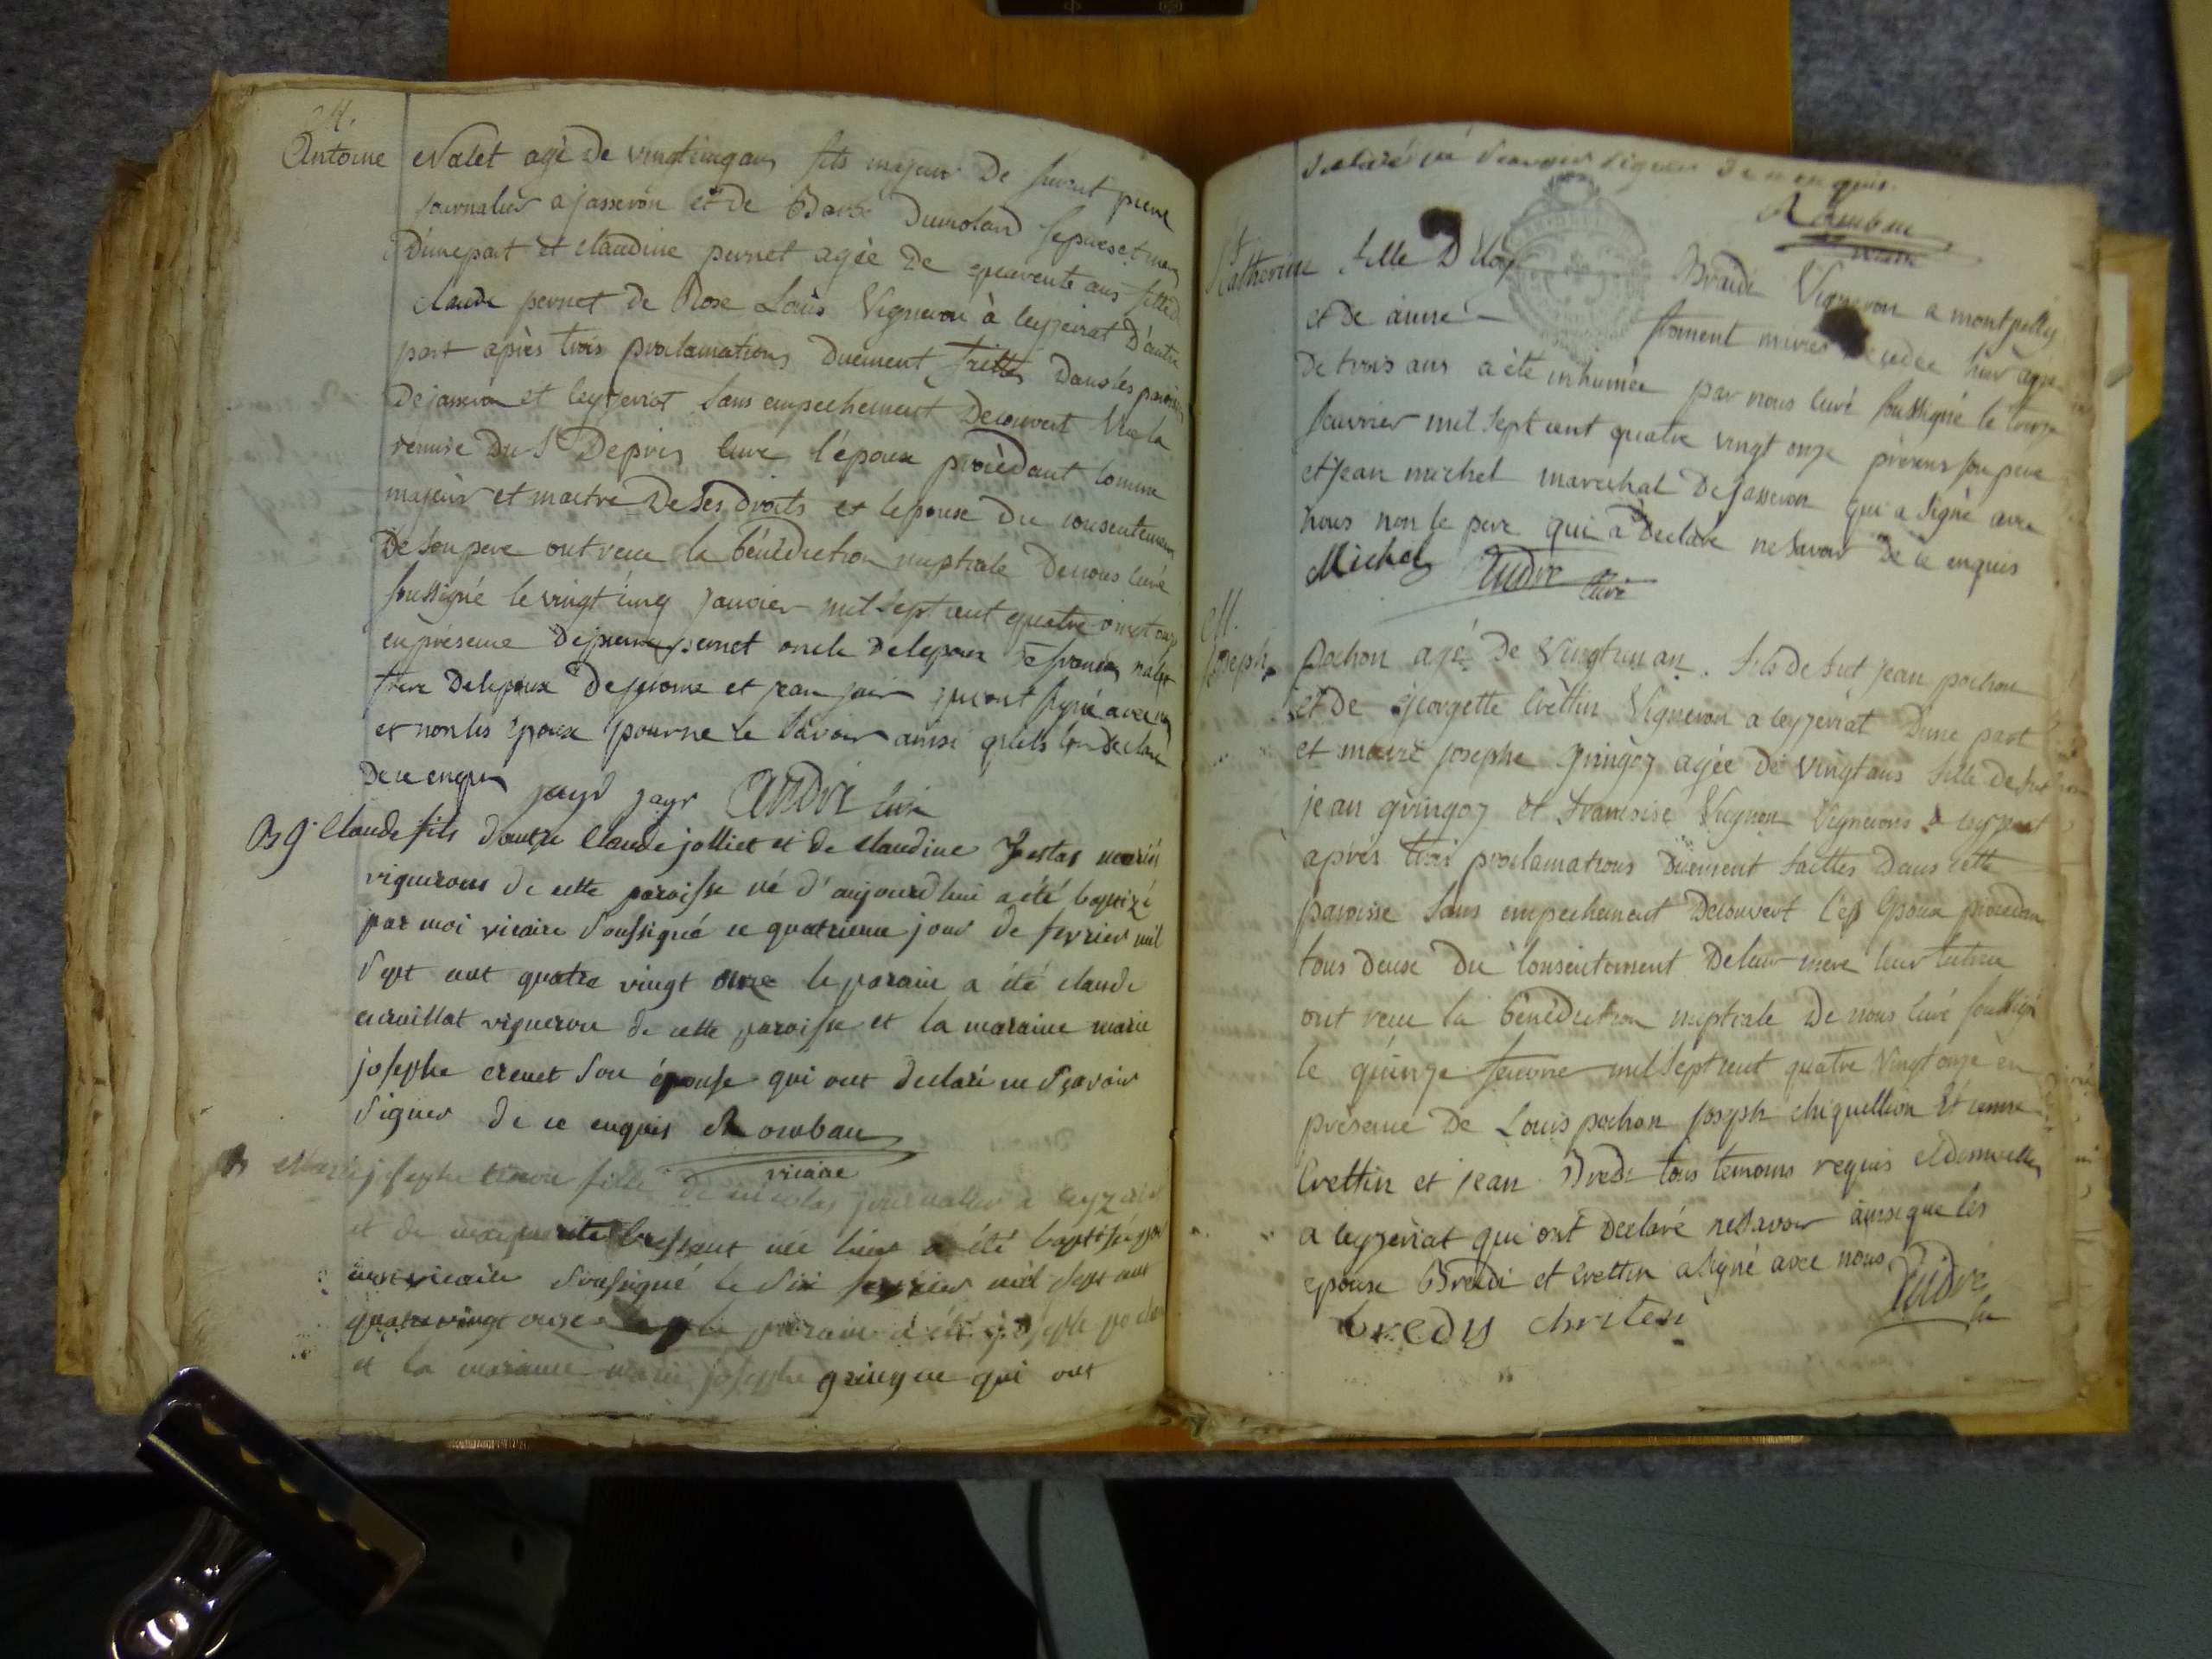 M.
Antoine Nalet agé De vingtcinq ans fils majeur De furent pierre
journalier a jasseron et de Dumoland
D'unepart et claudine pernet agée De quarente ans fille de
claude pernet de Rose Louis Vigneron à leyzeriat D'autre
part après trois proclamations Duement faittes Dans les paroisses
De jasseron et leyzeriat Sans empechement Decouvert Vu la
remise Du Sr Depris Curé l'époux procédant Comme
majeur et maitre De ses Droits et lepouse Du consentement
De Son pere ont recu la bénédiction nuptiale De nous Curé
soussigné le vingt cinq janvier mil sept cent quatre vingt onze
en présence De pierre pernet oncle De lepoux De francois nalet
frere De lepoux De jerome et jean jair qui ont signé avec nous
et non les époux pour ne le Savoir ainsi qu'ils lon declaré
De ce enquis jayr jayr ANDRÉ Curé
Claude fils d'autre Claude jolliet et de Claudine Jestas mariés
vignerons de cette paroisse né d'aujourdhui a été baptizé
par moi vicaire Soussigné ce quatrieme jour de fevrier mil
Sept cent quatre vingt onze le parain a été claude
vigneron de cette paroisse et la maraine marie
josephe crenet Son épouse qui ont declaré ne Sçavoir
Signer de ce enquis Rombau
vicaire
Marie josephe fille de nicolas journalier a leyzeriat
et de marguerite née hier a été baptisé par
vicaire Soussigné le Six fevrier mil Sept cent
quatre vingt onze le parain a été joseph pochon
et la maraine marie josephe qui ont
declaré ne Scavoir Signer De ce enquis.
Rombau
vicaire
St
Catherine fille D'Eloy Braidi Vigneron a montpelley
et de aimé froment mariés hier agée
De trois ans a été inhumée par nous Curé Soussigné le treize
fevrier mil Sept cent quatre vingt onze présens Son pere
et jean michel marechal De jasseron qui a signé avec
nous non le pere qui a Declaré ne Savoir De ce enquis
Michel ANDRÉ Curé
M.
joseph pochon agé De Vingt un an. fils de fut jean pochon
et De georgette Crettin Vigneron a leyzeriat D'une part
et marie josephe gringoz agée De vingt ans fille de fut
jean gringoz et francoise Vugnon Vignerons a leyzeriat
après trois proclamations Duement faittes Dans cette
paroisse Sans empechement Decouvert les Epoux procedant
tous Deux Du Consentement De leur mere leur tutrice
ont recu la bénédiction nuptiale De nous Curé soussigné
le quinze fevrier mil Sept cent quatre Vingt onze en
présence De Louis pochon joseph chiquellion Etienne
Crettin et jean Bredi tous temoins requis et Domiciliés
a leyzeriat qui ont Declaré ne Savoir ainsi que les
epoux Bredi et Crettin a Signé avec nous
bredy chriten ANDRÉ